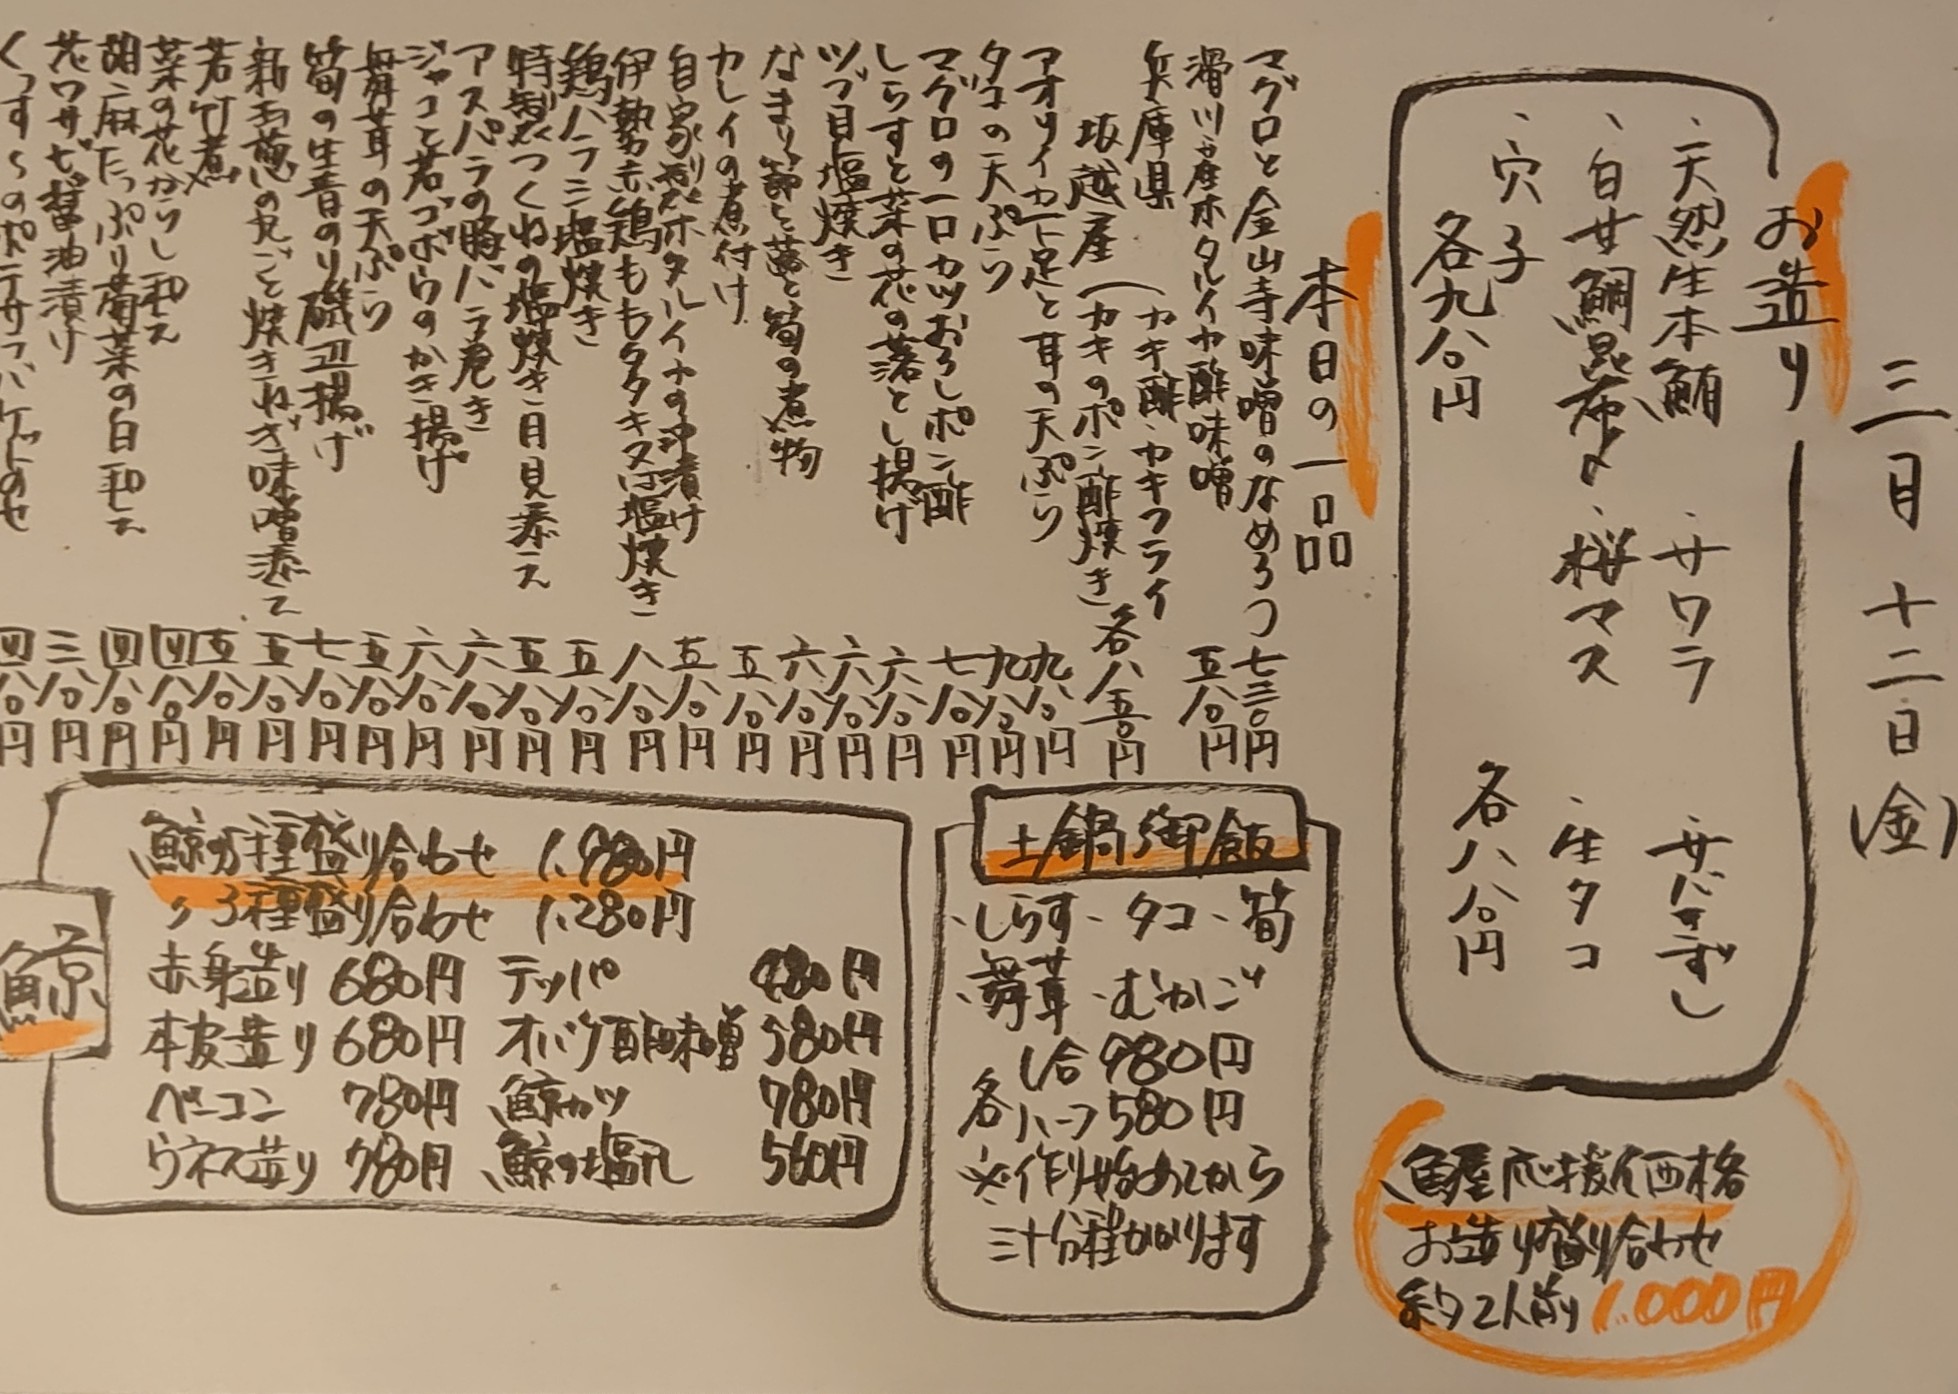 三月十二日(金)
お造り
、天然生本鮪 、サワラ 、サバきずし
、白甘鯛昆布〆 、桜マス 、生タコ
、穴子
各九八〇円 各八八〇円
魚屋応援価格
お造り盛り合わせ
約2人前 1.000円
本日の一品
マグロと金山寺味噌のなめろう 七三〇円
滑川産ホタルイカ酢味噌 五八〇円
兵庫県 (カキ酢・カキフライ
坂越産 (カキのポン酢焼き 各八五〇円
アオリイカ下足と耳の天ぷら 九八〇円
タコの天ぷら 九八〇円
マグロの一口カツおろしポン酢 七八〇円
しらすと菜の花の落とし揚げ 六八〇円
ツブ貝塩焼き 六八〇円
なまり節と蕗と筍の煮物 六八〇円
カレイの煮付け 五八〇円
自家製ホタルイカの沖漬け 五八〇円
伊勢赤鶏ももタタキ又は塩焼き 八八〇円
鶏ハラミ塩焼き 五八〇円
特製つくねの塩焼き月見添え 五八〇円
アスパラの豚バラ巻き 六八〇円
ジャコと若ゴボウのかき揚げ 六八〇円
舞茸の天ぷら 五八〇円
筍の生青のり磯辺揚げ 七八〇円
新玉葱の丸ごと焼きねぎ味噌添え 五八〇円
若竹煮 五八〇円
菜の花からし和え 四八〇円
胡麻たっぷり菊菜の白和え 四八〇円
花ワサビ醤油漬け 三八〇円
四八〇円
土鍋御飯
、しらす、タコ、筍
、舞茸、むかご
各 1合980円
ハーフ580円
※作り始めてから
三十分程かかります
鯨
鯨5種盛り合わせ 1.980円
〃3種盛り合わせ 1.280円
赤身造り 680円 テッパ 480円
本皮造り 680円 オバケ酢味噌 580円
ベーコン 780円 鯨カツ 780円
ウネス造り 780円 鯨の塩  560円